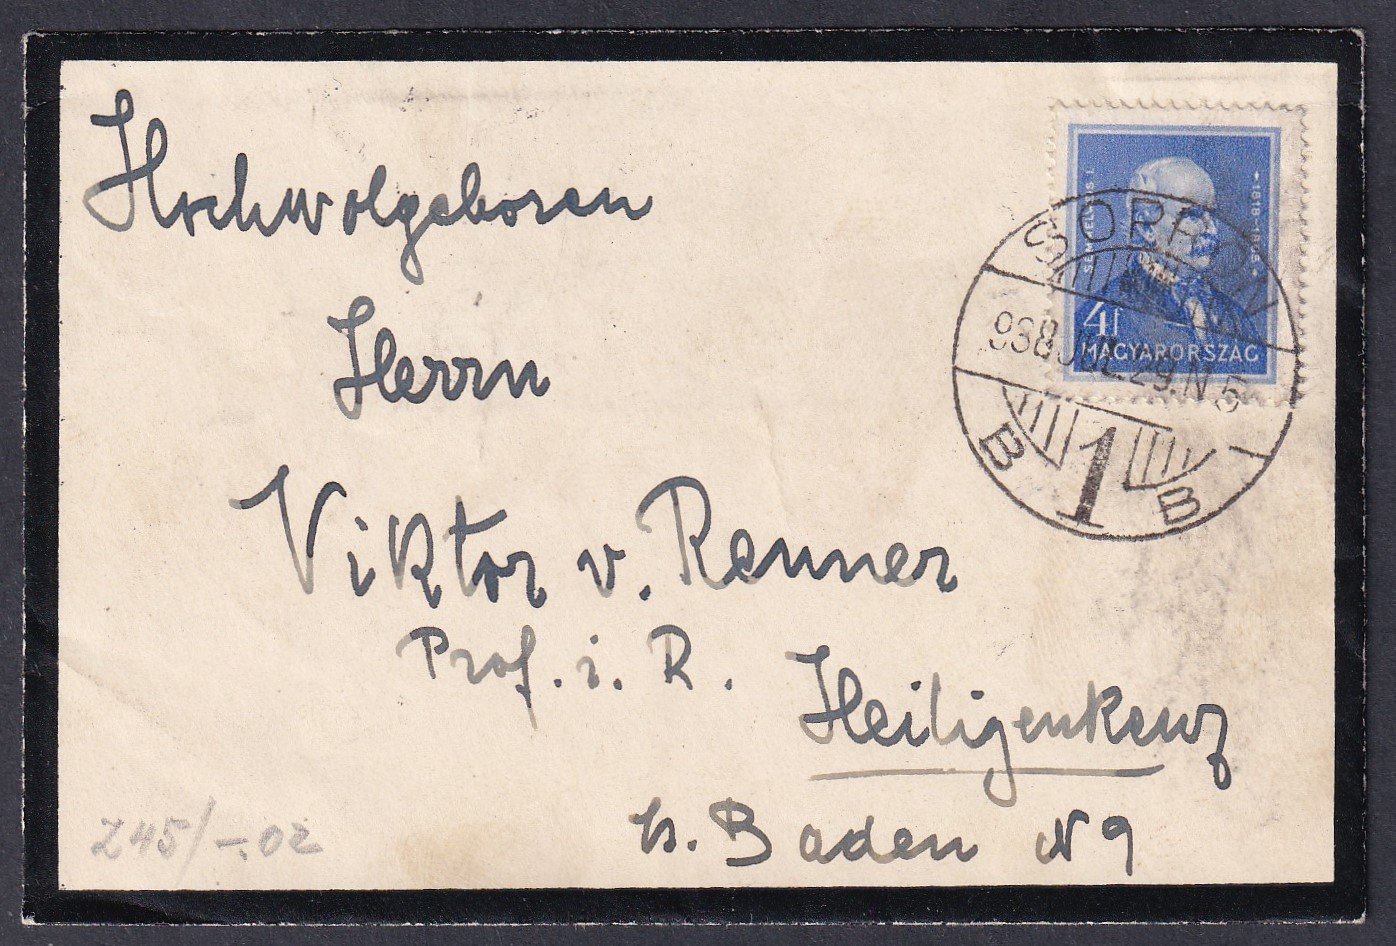 Hochwolgeboren
Herrn
Viktor v. Renner
Prof. i. R.
Heiligenkenz
b. Baden N 9
SEMMELWEIS I.
*1818-1865*
4f
MAGYARORSZÁG
SOPRON
938 JUL. 29. N 5
B 1 B
245/-.02